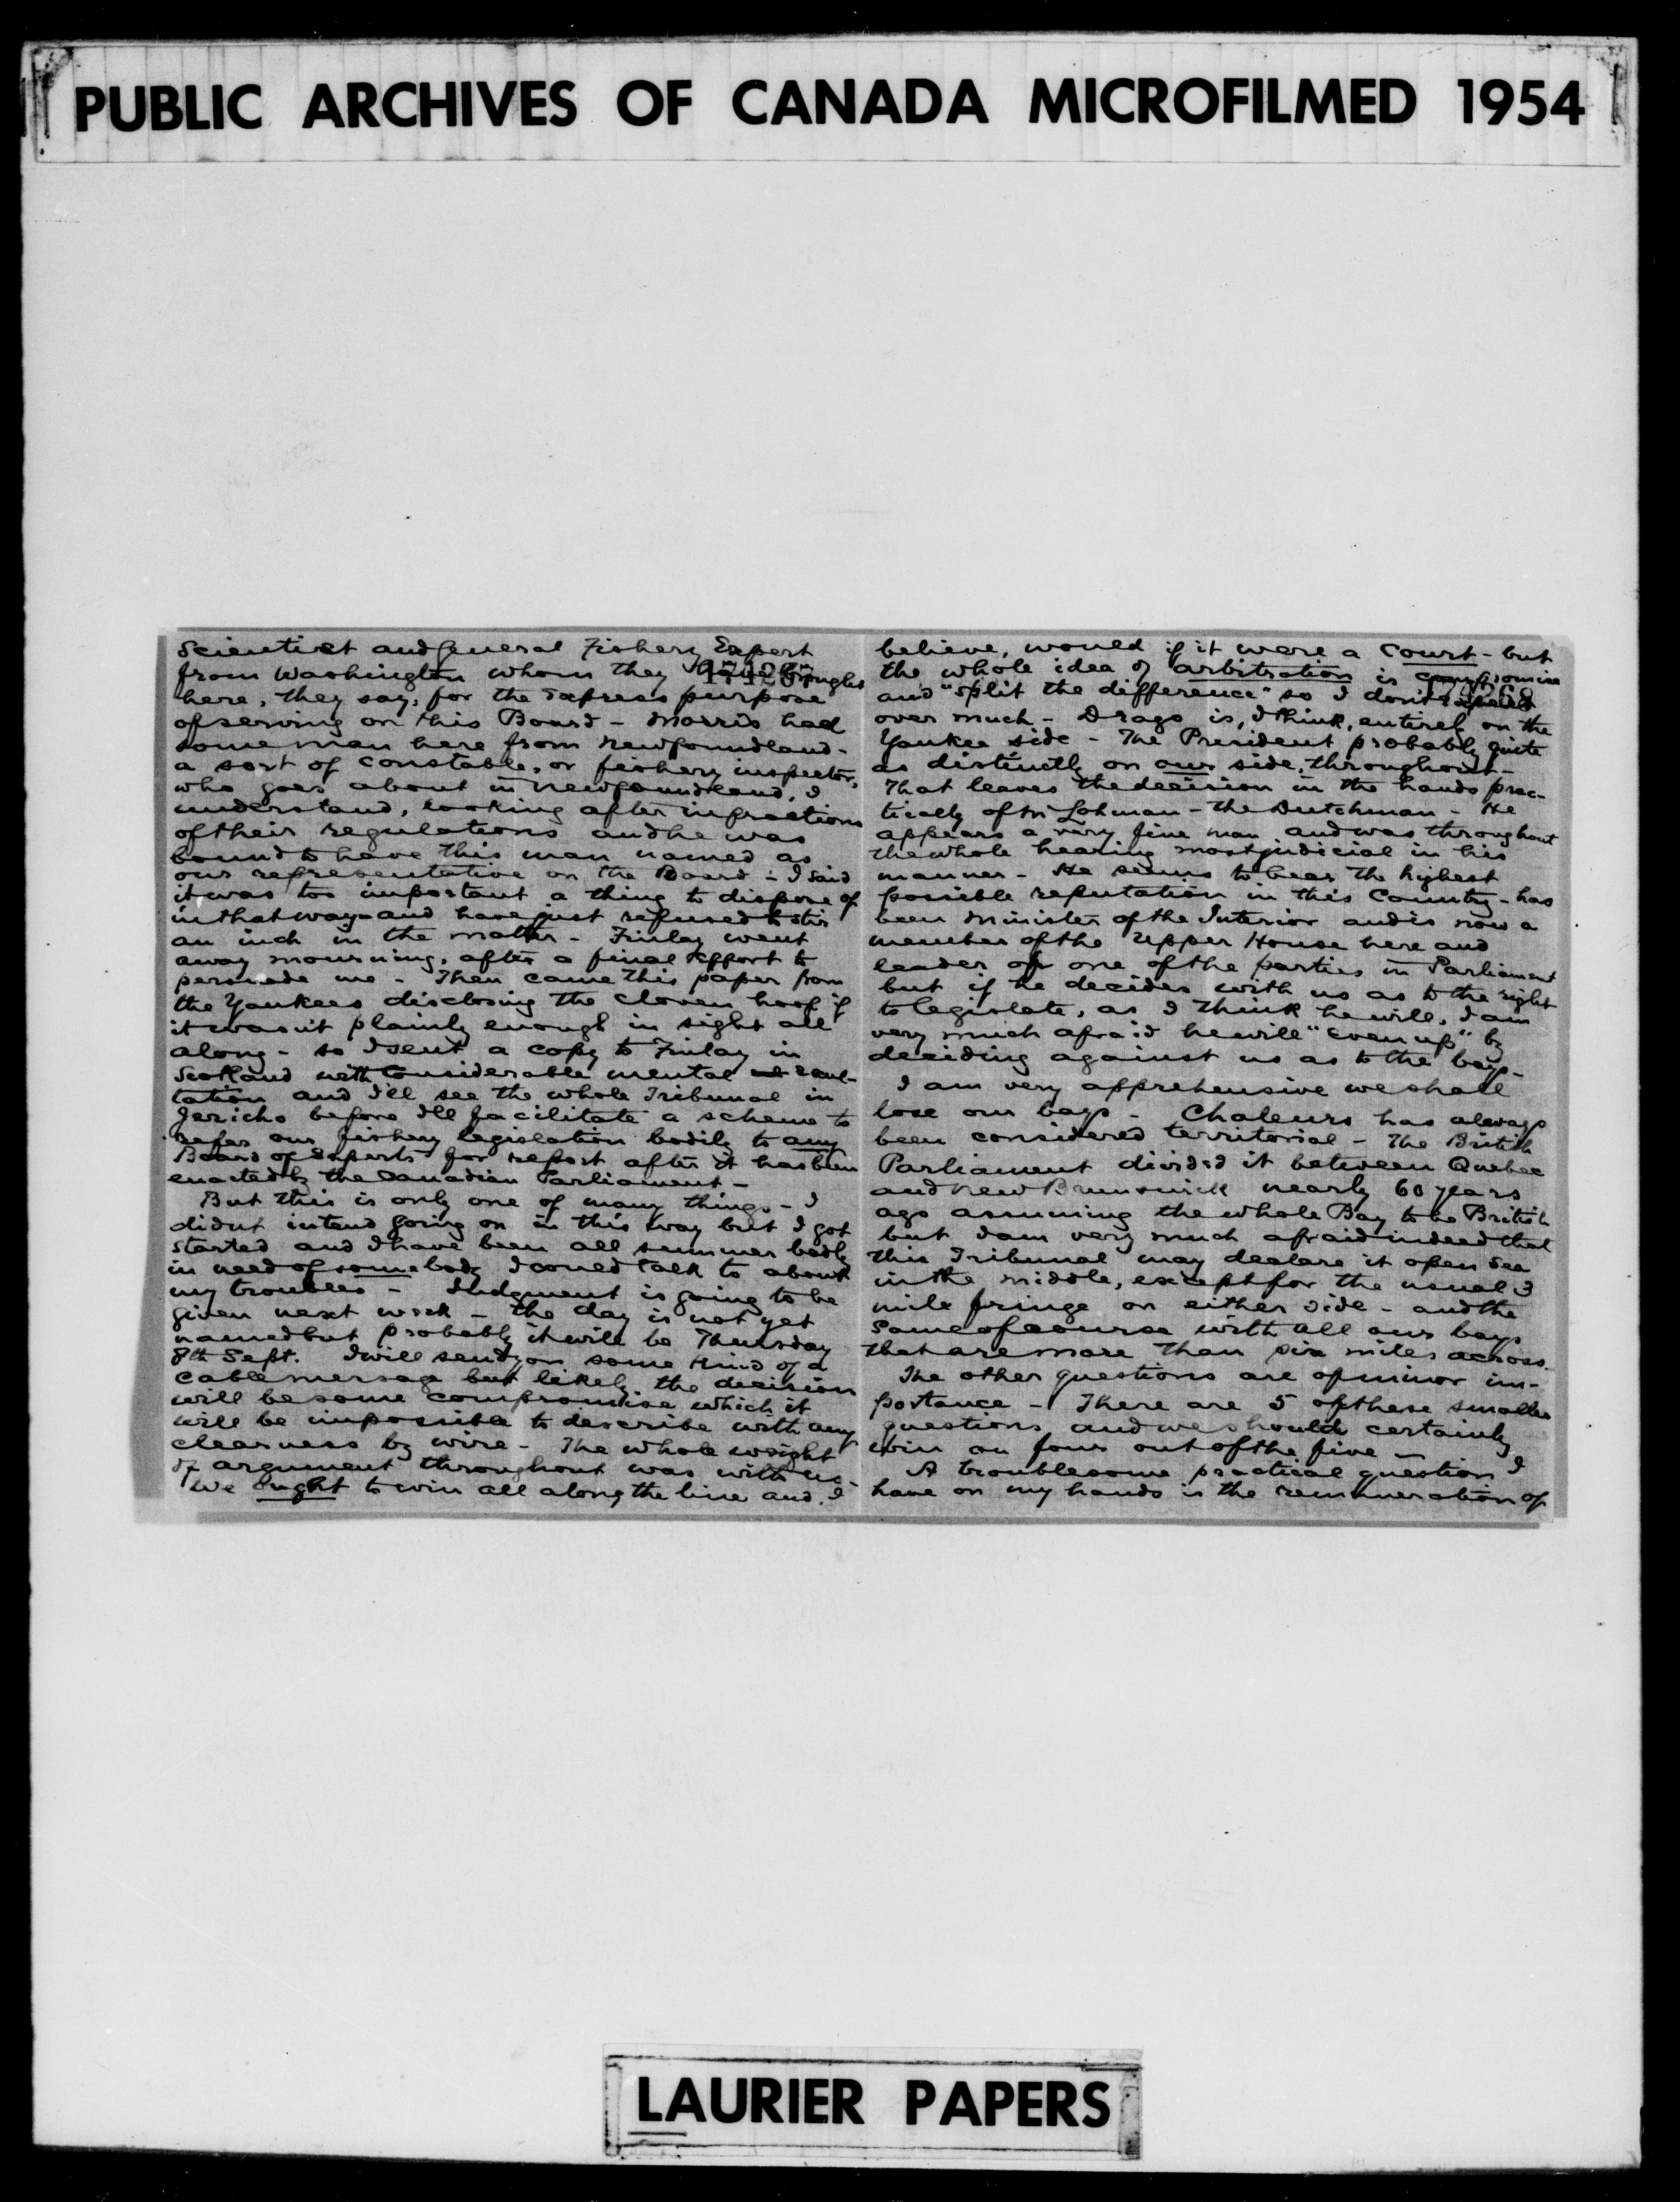 PUBLIC ARCHIVES OF CANADA MICROFILMED 1954
Scientist and General Fishery Expert
from Washington whom they have brought
here, they say, for the express purpose
of serving on this Board - Morris had
some man here from Newfoundland -
a sort of constable, or fishery inspector,
who goes about in Newfoundland, I
understand, looking after infractions
of their regulations and he was
bound to have this man named as
our representative on the Board - I said
it was too important a thing to dispose of
in that way - and have just refused to stir
an inch in the matter - Finlay went
away mourning, after a final effort to
persuade me - Then came this paper from
the Yankees disclosing the cloven hoof if
it wasn't plainly enough in sight all
along - so I sent a copy to Finlay in
Scotland with considerable mental exul-
tation and I'll see the whole Tribunal in
Jericho before I'll facilitate a scheme to
refer our fishery legislation bodily to any
Board of Experts for report after it has been
enacted by the Canadian Parliament -
But this is only one of many things - I
didnt intend going on in this way but I got
started and I have been all summer badly
in need of somebody I could talk to about
my troubles - Judgment is going to be
given next week - the day is not yet
named but probably it will be Thursday
8th Sept. I will send you some kind of a
cable message but likely the decision
will be some compromise which it
will be impossible to describe with any
clearness by wire - The whole weight
of argument throughout was with us -
We ought to win all along the line and, I
believe, would if it were a Court - but
the whole idea of arbitration is compromise
and "split the difference" so I don't expect
over much - Drago is, I think, entirely on the
Yankee side - The President probably quite
as distinctly on our side, throughout -
That leaves the decision in the hands prac-
tically of M. Lohman - the Dutchman - He
appears a very fine man and was throughout
the whole hearing most judicial in his
manner - He seems to bear the highest
possible reputation in this Country - has
been Minister of the Interior and is now a
member of the Upper House here and
leader of one of the parties in Parliament
but if he decides with us as to the right
to legislate, as I think he will, I am
very much afraid he will "even up" by
deciding against us as to the bays -
I am very apprehensive we shall
lose our bays - Chaleurs has always
been considered territorial - The British
Parliament divided it between Quebec
and New Brunswick nearly 60 years
ago assuming the whole Bay to be British
but I am very much afraid indeed that
this Tribunal may declare it open sea
in the middle, except for the usual 3
mile fringe on either side - and the
same of course with all our bays
that are more than six miles across.
The other questions are of minor im-
portance - There are 5 of these smaller
questions and we should certainly
win on four out of the five -
A troublesome practical question I
have on my hands is the remuneration of
LAURIER PAPERS